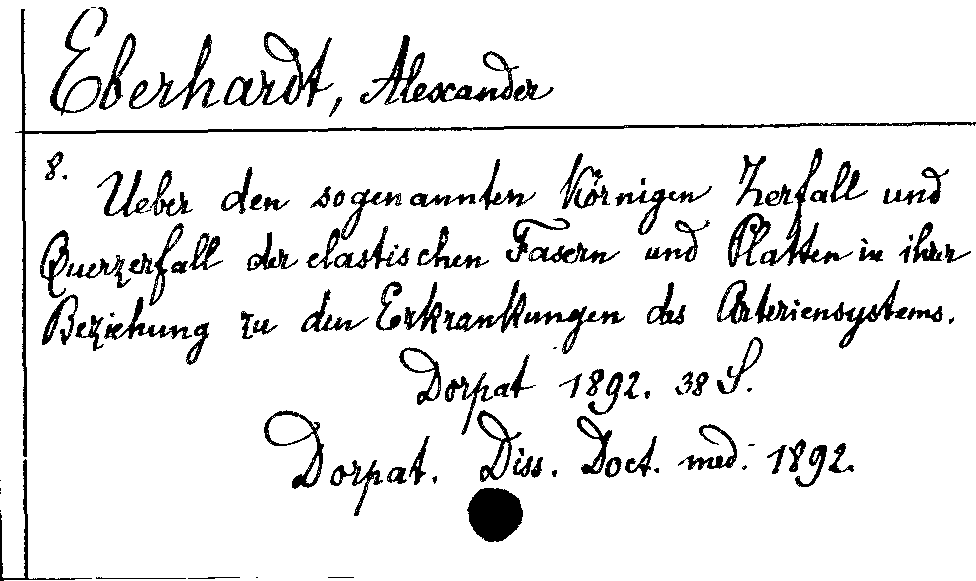 Eberhardt, Alexander
8.
Ueber den sogenannten Körnigen Zerfall und
Querzerfall der elastischen Fasern und Platten in ihrer
Beziehung zu den Erkrankungen des Arteriensystems.
Dorpat 1892. 38 S.
Dorpat. Diss. Doct. med. 1892.